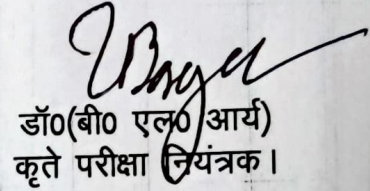 डॉ0(बी0 एल0 आर्य)
कृते परीक्षा नियंत्रक।